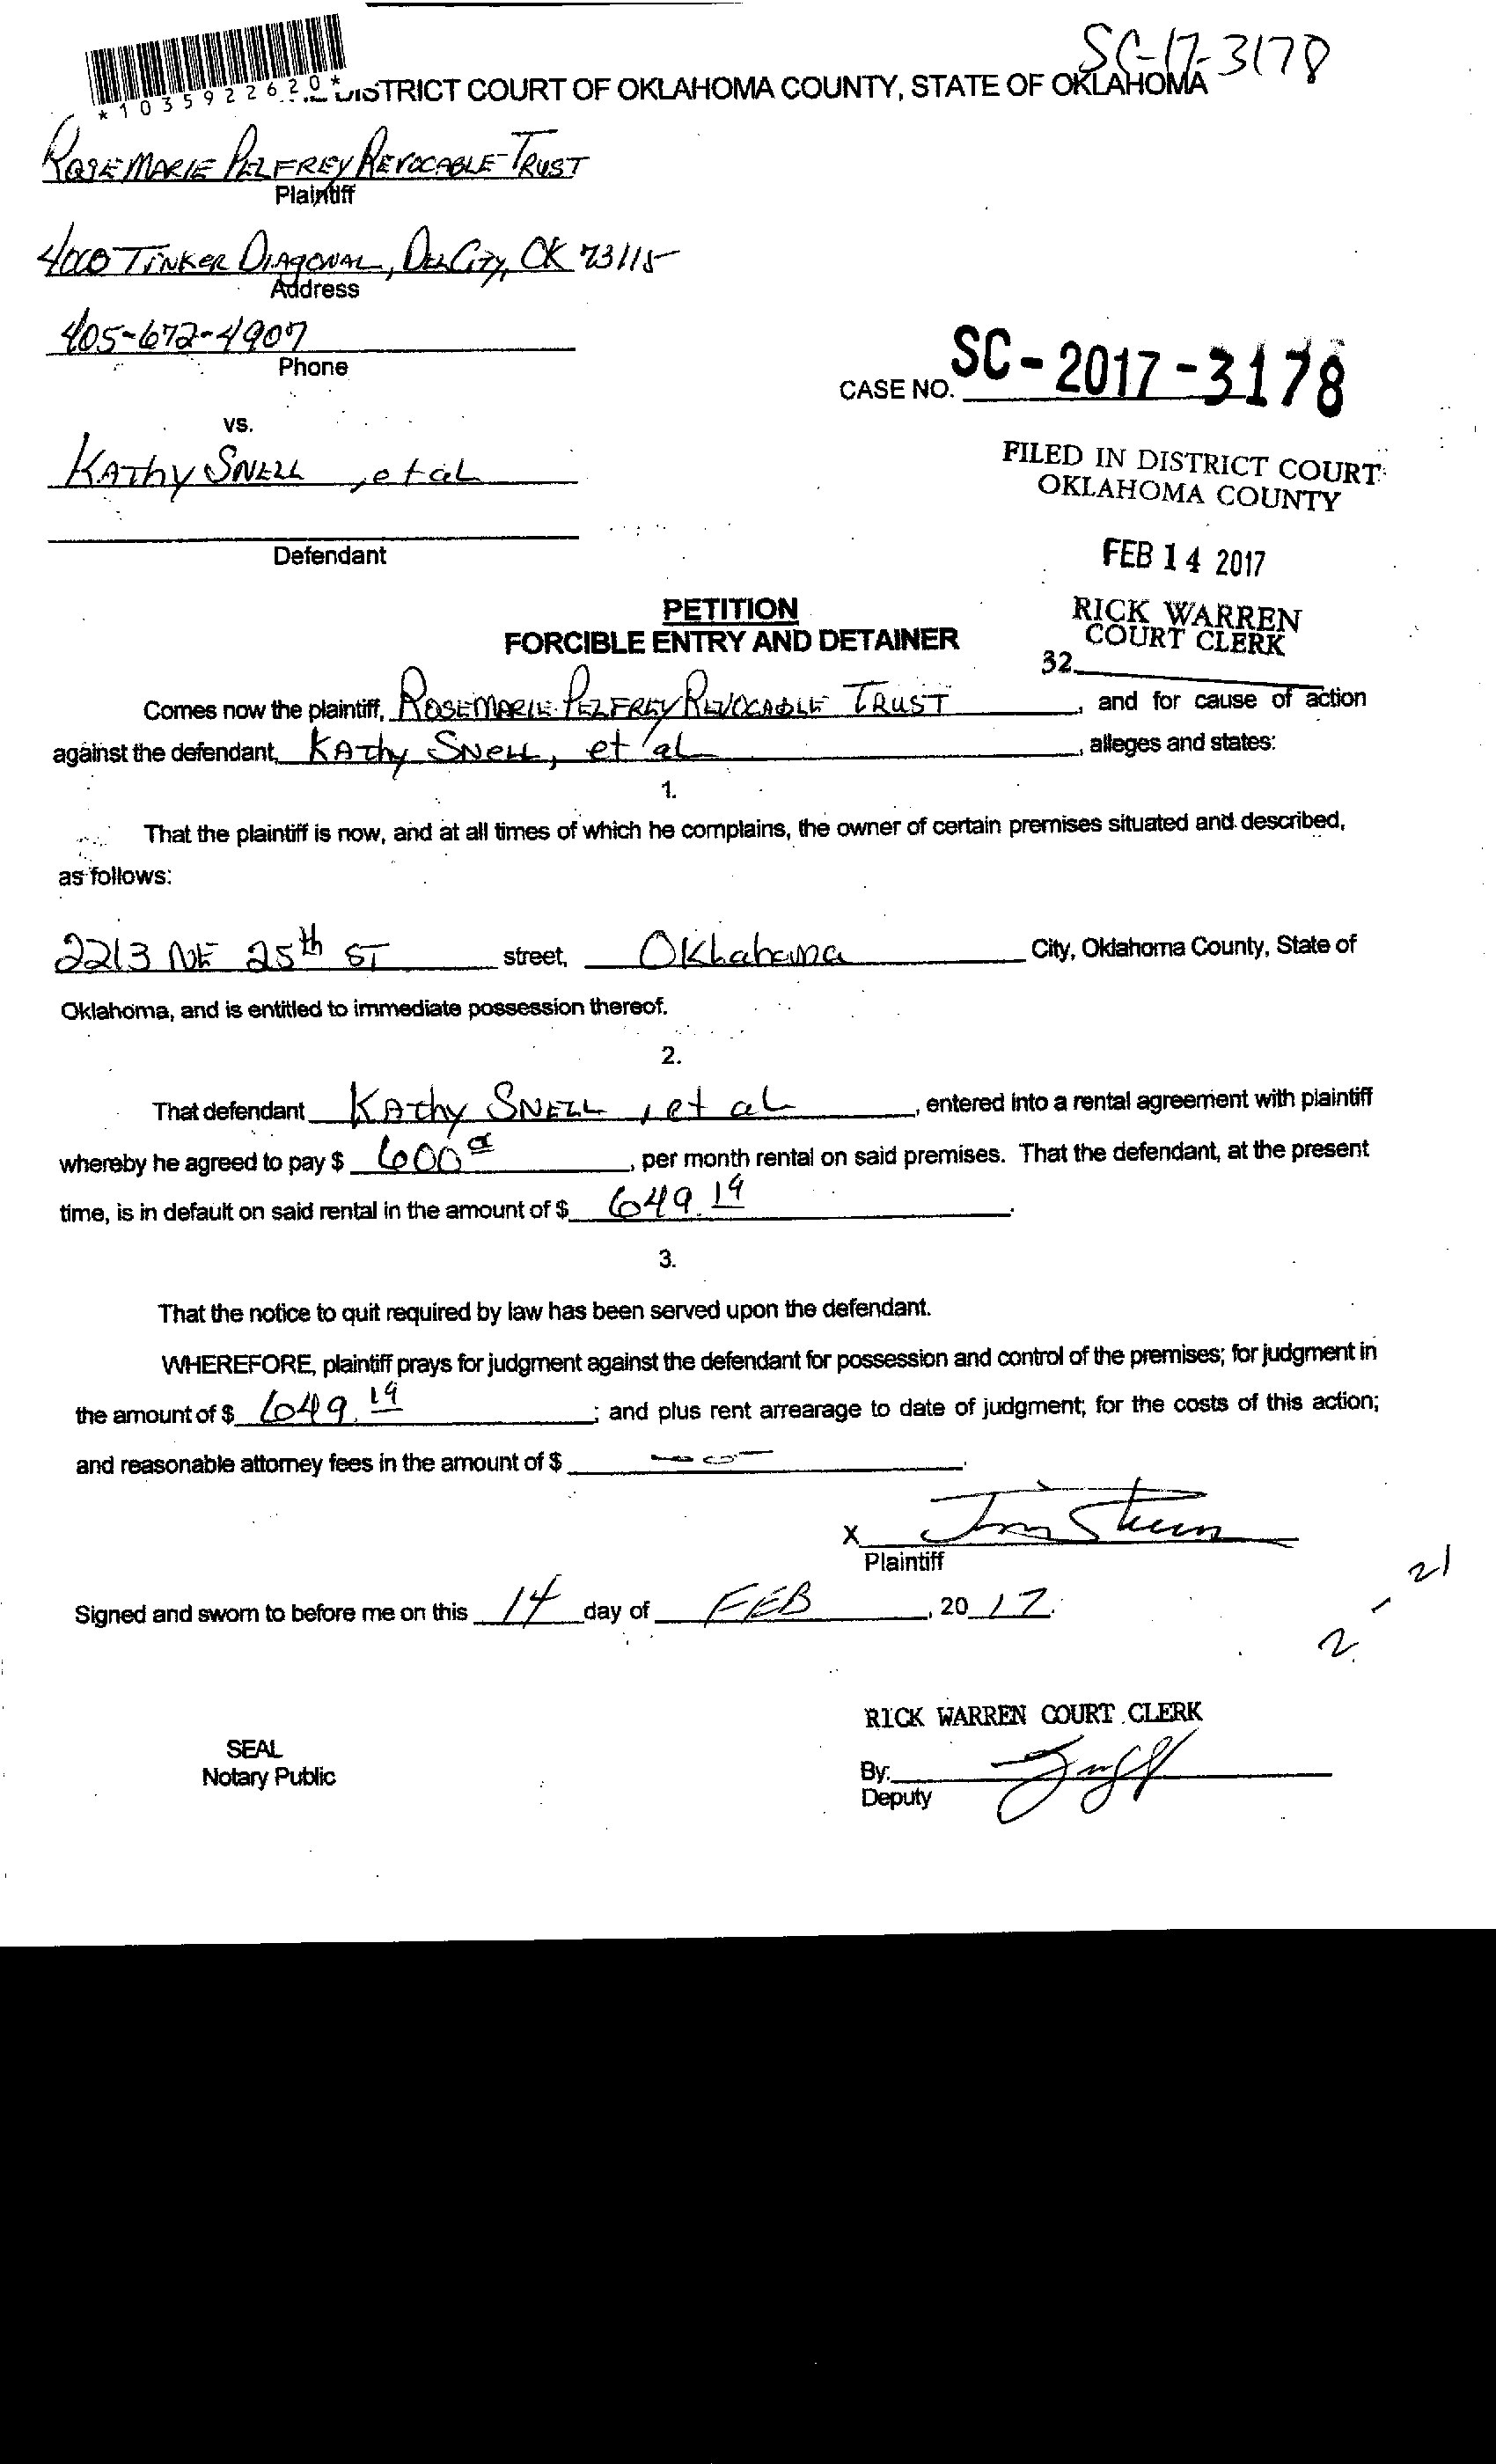 SC-17-3178
*1035922620*
DISTRICT COURT OF OKLAHOMA COUNTY, STATE OF OKLAHOMA
ROSEMARIE PELFREY REVOCABLE TRUST
Plaintiff
4000 TINKER DIAGONAL, DEL CITY, OK 73115
Address
405-672-4907
Phone
CASE NO. SC-2017-3178
vs.
KAThy SNELL, et aL
FILED IN DISTRICT COURT
OKLAHOMA COUNTY
Defendant
FEB 14 2017
PETITION
FORCIBLE ENTRY AND DETAINER
RICK WARREN
COURT CLERK
32
Comes now the plaintiff, ROSEMARIE PELFREY REVOCABLE TRUST, and for cause of action
against the defendant, KAThy SNELL, et aL, alleges and states:
1.
That the plaintiff is now, and at all times of which he complains, the owner of certain premises situated and described,
as follows:
2213 NE 25th ST street, OKLahoma City, Oklahoma County, State of
Oklahoma, and is entitled to immediate possession thereof.
2.
That defendant KAThy SNELL, et aL, entered into a rental agreement with plaintiff
whereby he agreed to pay $ 600, per month rental on said premises. That the defendant, at the present
time, is in default on said rental in the amount of $ 649.19.
3.
That the notice to quit required by law has been served upon the defendant.
WHEREFORE, plaintiff prays for judgment against the defendant for possession and control of the premises; for judgment in
the amount of $ 649.19; and plus rent arrearage to date of judgment; for the costs of this action;
and reasonable attorney fees in the amount of $ -0-.
X
Plaintiff
Signed and sworn to before me on this 14 day of FEB, 2017.
2-21
RICK WARREN COURT CLERK
SEAL
Notary Public
By:
Deputy